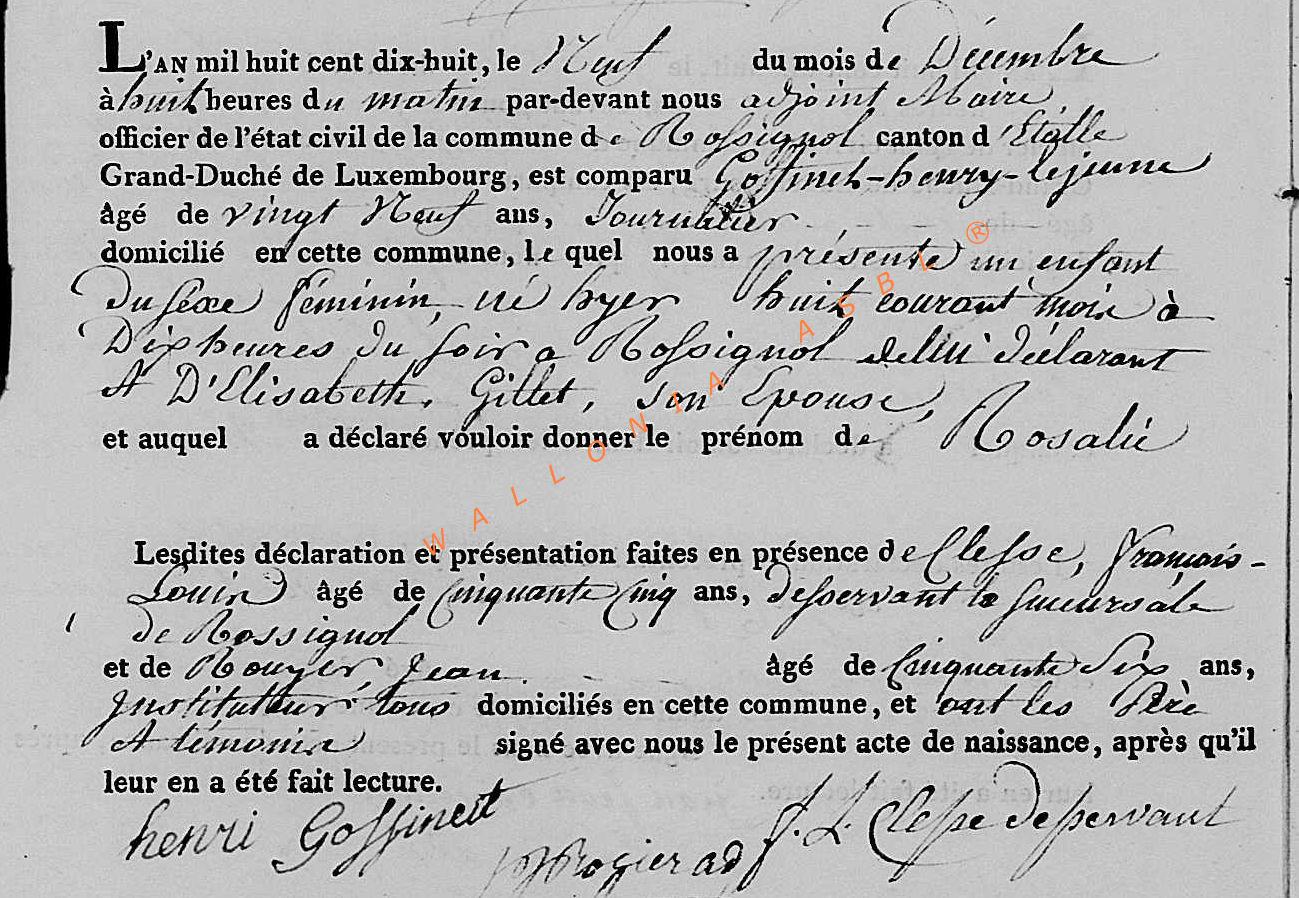 L'AN mil huit cent dix-huit, le Neuf du mois de Décembre
à huit heures du matin par-devant nous adjoint Maire
officier de l'état civil de la commune de Rossignol canton d'Etalle
Grand-Duché de Luxembourg, est comparu Goffinet-henry-lejeune
âgé de vingt Neuf ans, Journalier
domicilié en cette commune, le quel nous a présenté un enfant
du séxe féminin, né hyer huit courant mois à
Dix heures du soir a Rossignol de lui déclarant
et D'Elisabeth Gillet, son Epouse,
et auquel a déclaré vouloir donner le prénom de Rosalie
Lesdites déclaration et présentation faites en présence de Clesse, François-
Louis âgé de Cinquante Cinq ans, desservant la sucursale
de Rossignol
et de Rouyer, Jean âgé de Cinquante Six ans,
Instituteur tous domiciliés en cette commune, et ont les Père
et témoins signé avec nous le présent acte de naissance, après qu'il
leur en a été fait lecture.
henri Goffinet
Rogier adj
f. L. Clesse desservant
WALLONIA ASBL ®